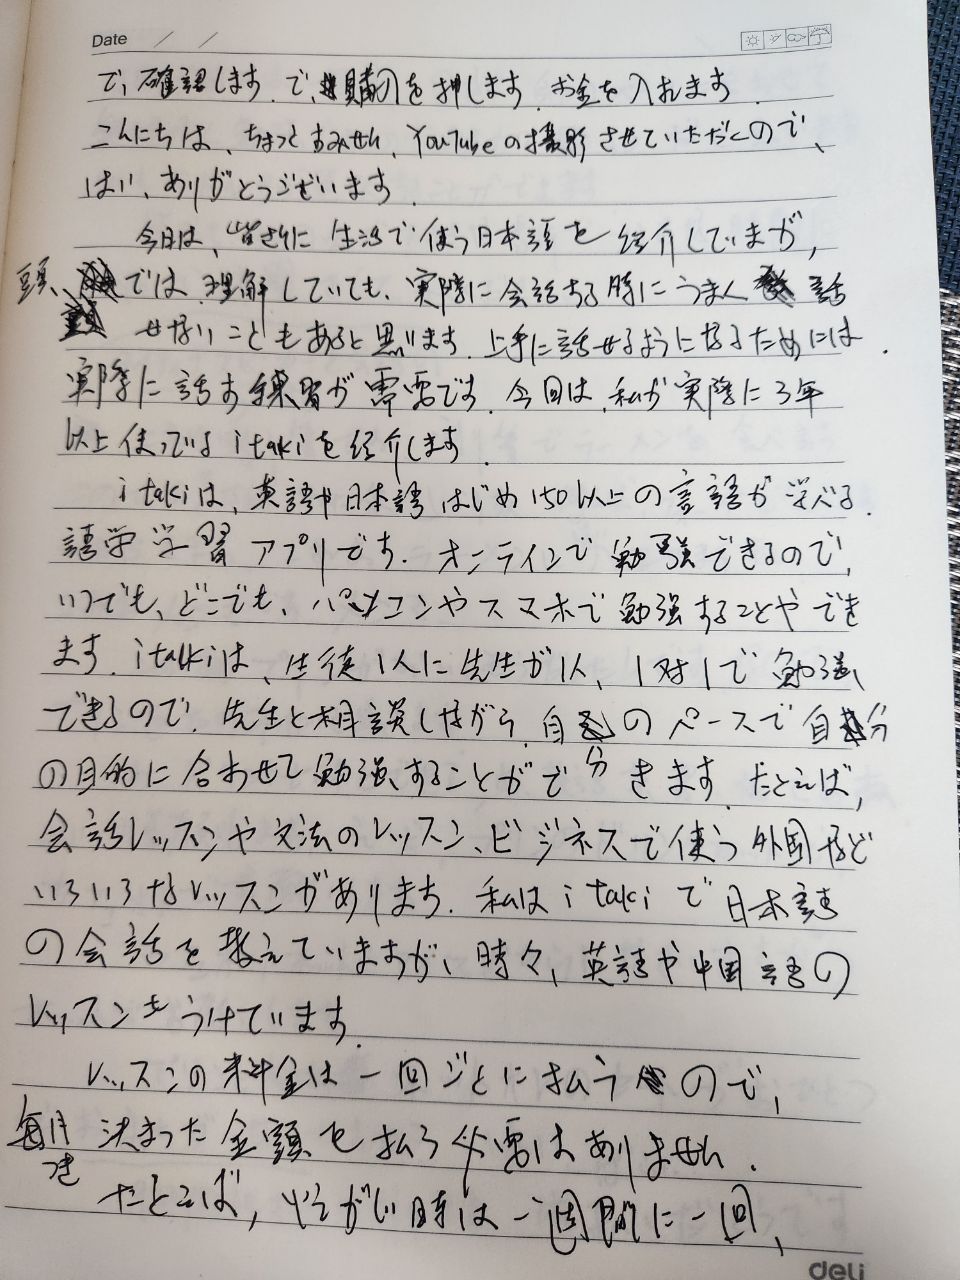 Date / /
で、確認します.で、購入を押します.お金を入れます.
こんにちは、ちょっとすみません、YouTubeの撮影させていただくので、
はい、ありがとうございます.
今日は、皆さんに生活で使う日本語を紹介していまが,
頭、では理解していても、実際に会話する時にうまく話
せないこともあると思います.上手に話せるようになるためには.
実際に話す練習が需要です.今回は、私が実際に3年
以上使っているitakiを紹介します.
itakiは、英語や日本語はじめ150以上の言語が学べる.
語学学習アプリです.オンラインで勉強できるので,
いつでも、どこでも、パソコンやスマホで勉強することやでき
ます.italkiは、生徒1人に先生が1人、1対1で勉強
できるので.先生と相談しながら、自分のペースで自分
の目的に合わせて勉強することができます.たとえば,
会話レッスンや文法のレッスン、ビジネスで使う外国など
いろいろなレッスンがあります.私はitakiで日本語
の会話を教えていますが、時々、英語や中国語の
レッスンをうけています.
レッスンの料金は一回ごとに払うので,
毎月 決まった金額を払う必要はありません.
つき
たとえば,いそがしい時は一週間に一回,
deli